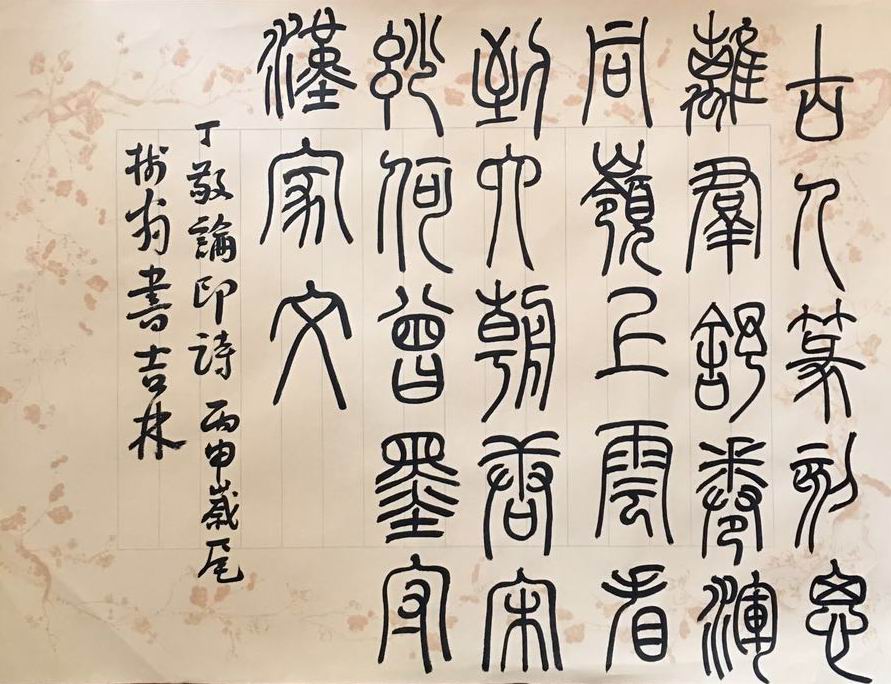 古人篆刻思
離羣舒卷渾
同嶺上雲看
到六朝唐宋
玅何曾墨守
漢家文
丁敬論印詩 丙申歲尾
書吉林